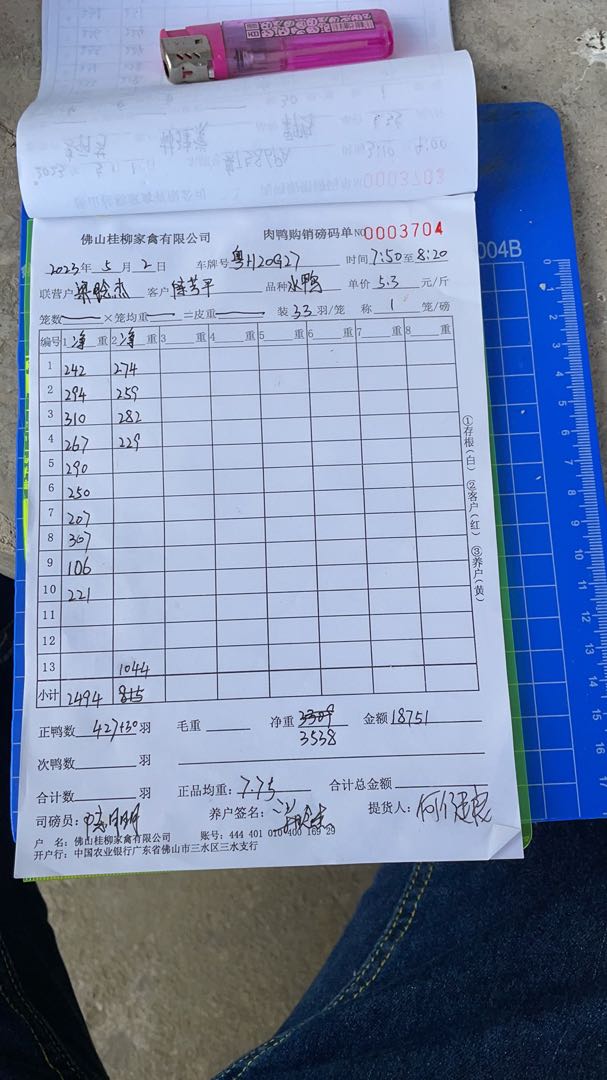 佛山桂柳家禽有限公司 肉鸭购销磅码单 NO 0003704
2023年 5 月 2 日 车牌号 粤H20G27 时间 7:50 至 8:20
联营户 客户 品种 水鸭 单价 5.3 元/斤
笼数 ×笼均重 =皮重 装 33 羽/笼 称 1 笼/磅
编号 1 净 重 2 净 重 3 重 4 重 5 重 6 重 7 重 8 重
1 242 274
2 294 259
3 310 282
4 267 229
5 290
6 250
7 207
8 307
9 106
10 221
11
12
13 1044
小计 2494 815
①存根(白) ②客户(红) ③养户(黄)
正鸭数 427+30 羽 毛重 净重 3309 金额 18751
3538
次鸭数 羽
合计数 羽 正品均重: 7.75 合计总金额
司磅员: 养户签名: 提货人:
户 名: 佛山桂柳家禽有限公司 账号: 444 401 010 400 169 29
开户行: 中国农业银行广东省佛山市三水区三水支行
004B